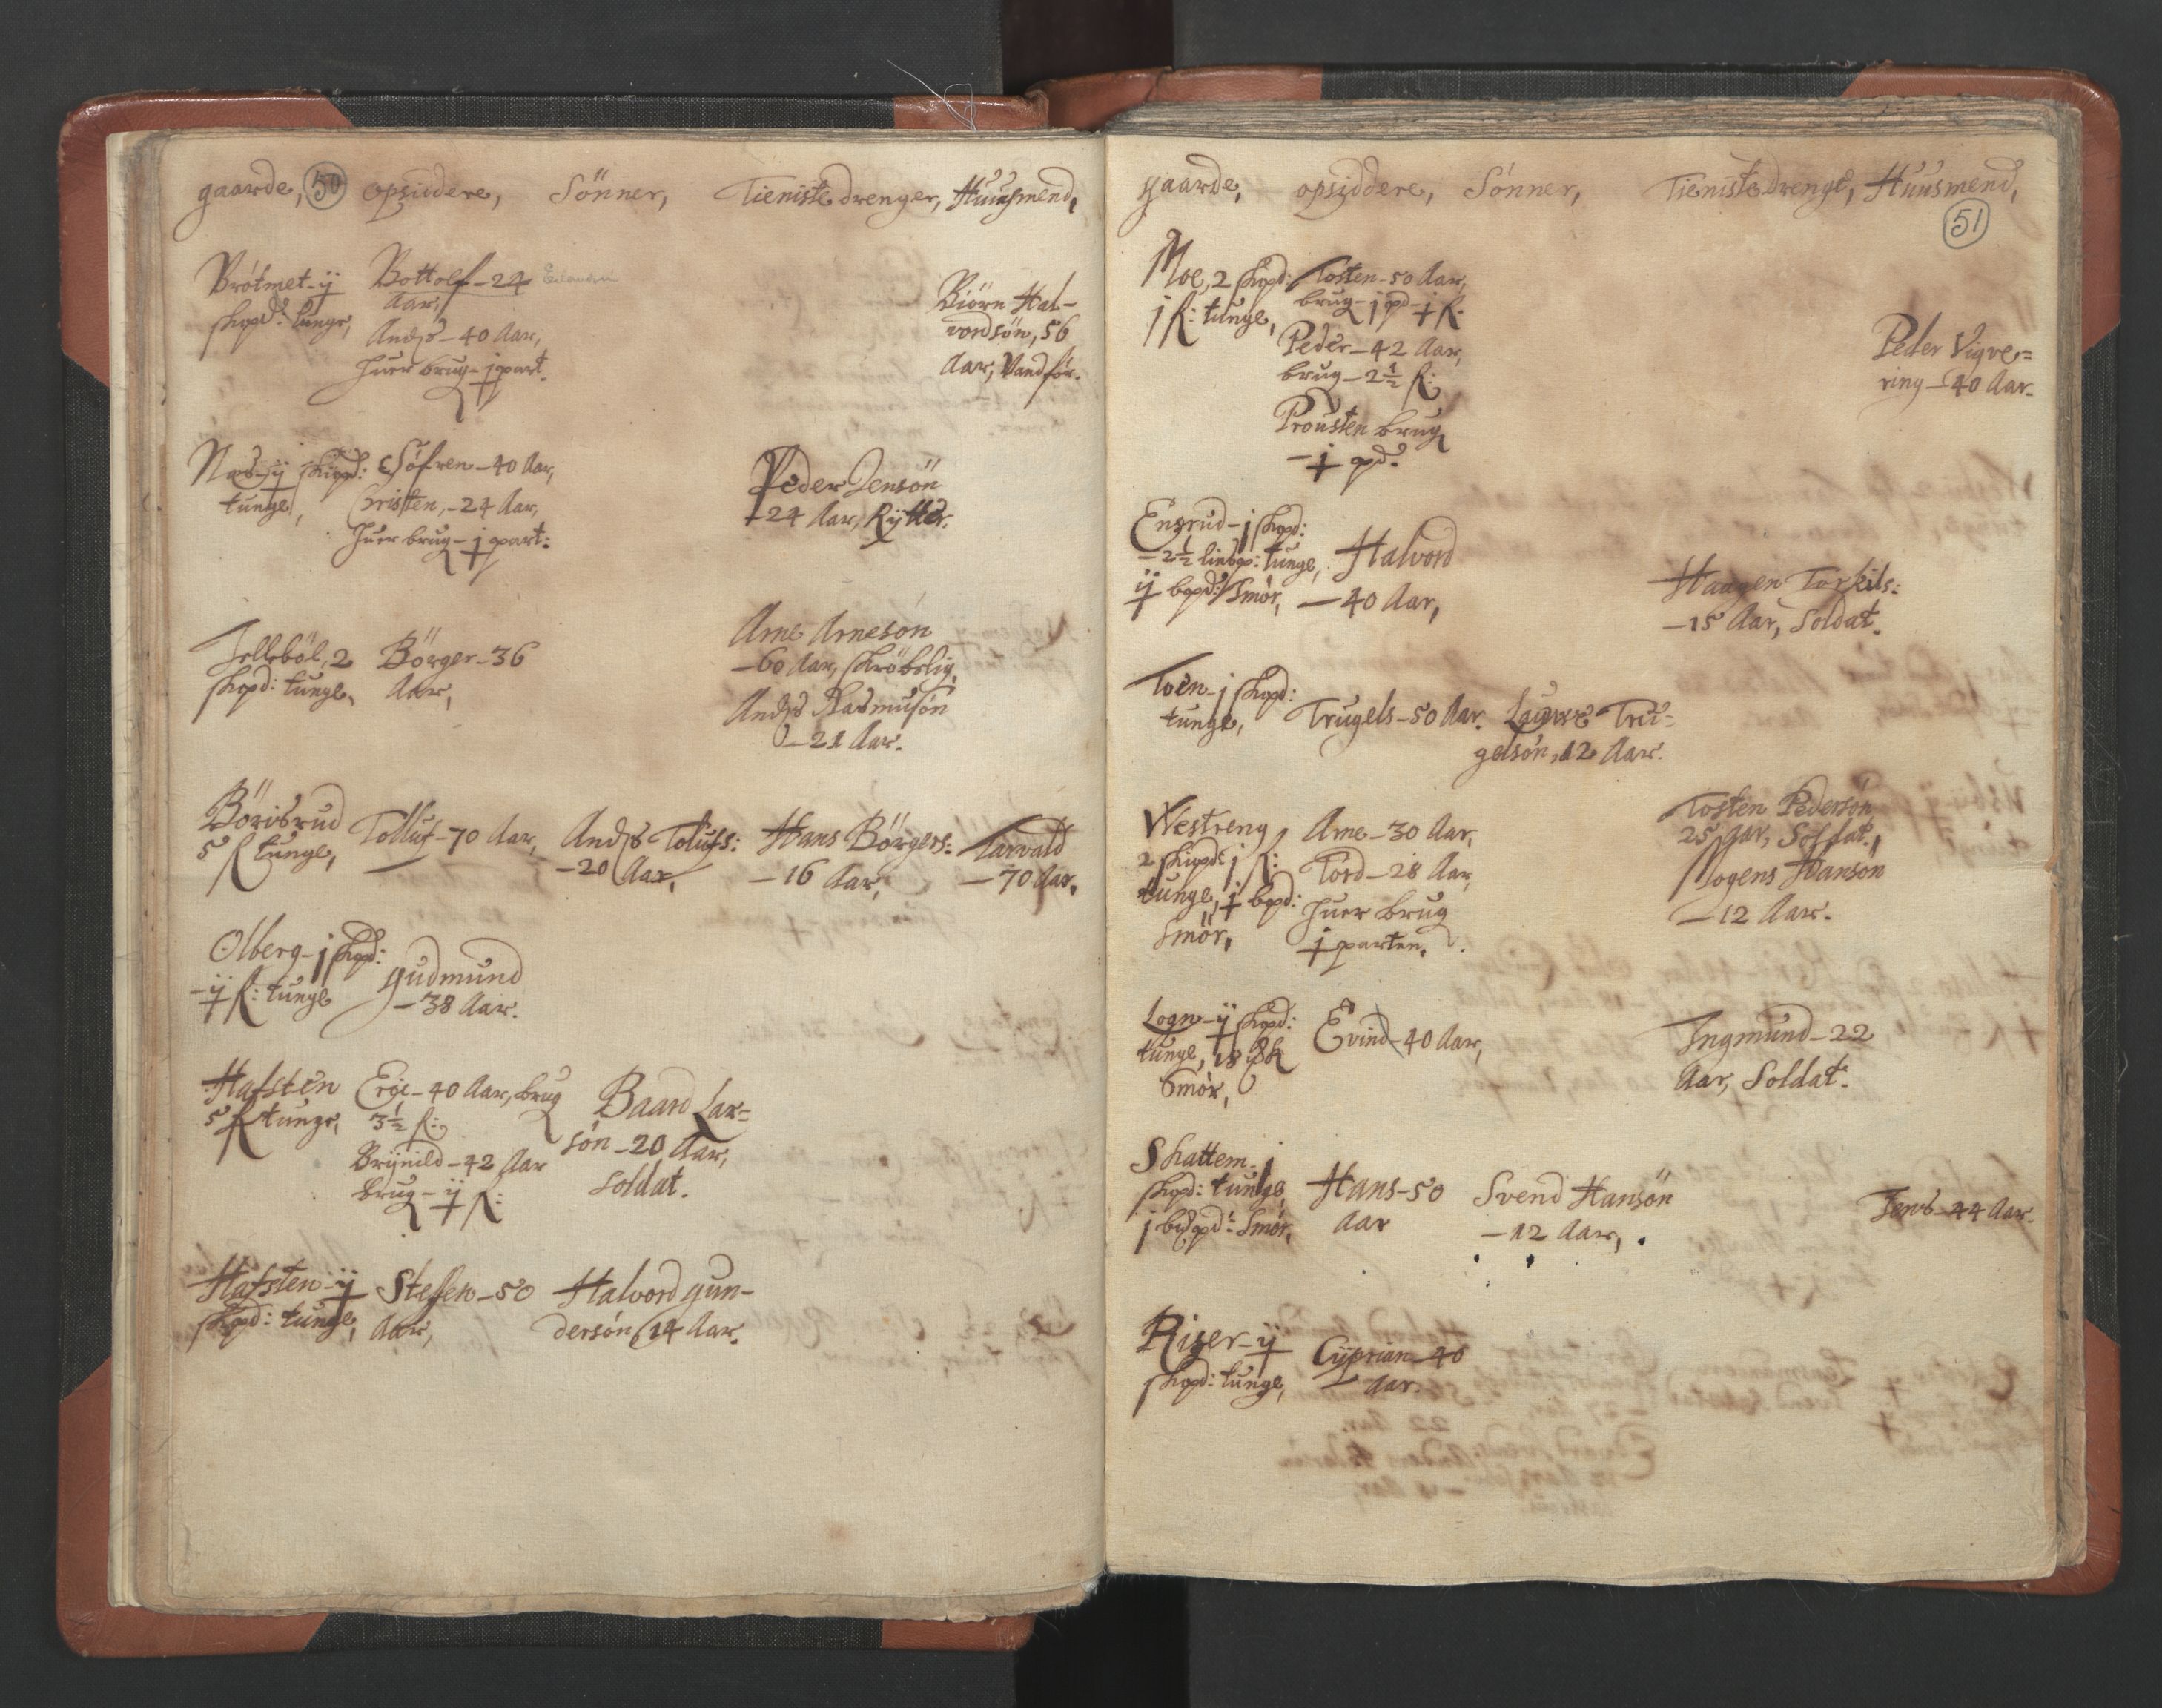 gaarde, 50 opsiddere, Sönner, Tieniste drenger, Huusmend,
Brötmet - ij
skopd: tunge,
Bottolf - 24
Aar,
Anders - 40 Aar,
huer brug - j part.
Biörn Hal-
vordsön, 56
Aar, Vandför.
Næs - ij skippd:
tunge,
Söfren - 40 Aar,
Christen, - 24 Aar,
huer brug - j part:
Peder Jensön
- 24 Aar, Rytter.
Jelleböl, 2
skopd: tunge,
Börger - 36
Aar,
Arne Arnesön
- 60 Aar, skröbelig,
Anders Rasmusön
- 21 Aar.
Börisrud
5 f: tunge,
Tolluf - 70 Aar,
Anders Tolufs:
- 20 Aar,
Hans Börgers:
- 16 Aar,
Tarvald
- 70 Aar,
Olberg - j skopd:
- ij f: tunge
Gudmund
- 38 Aar.
Hafsten
5 f: tunge,
Erge - 40 Aar, brug
3½ f:
Brynild - 42 Aar
brug - ij f:
Baard Lar=
sön - 20 Aar,
Soldat.
Hafsten - ij
skopd: tunge,
Steffen - 50
Aar,
Halvord Gun-
dersön, 14 Aar.
gaarde, opsiddere, Sönner, Tieniste drenge, Huusmend,
51
Moe, 2 skopd:
j f: tunge,
Tosten - 50 Aar,
brug - j pd - j f:
Peder - 42 Aar,
brug - 2½ f:
Prousten brug
- j pd.
Peder Vigve=
ring - 40 Aar.
Engrud - j skopd:
- 2½ lisbp: tunge,
ij bopd: Smör,
Halvord
- 40 Aar,
Haagen Torkils:
- 15 Aar, Soldat.
Toen - j skopd:
tunge,
Trugels - 50 Aar.
Laurs Tru=
gelsön, 12 Aar.
Westreng,
2 skopd: j f:
tunge, j bopd:
Smör,
Arne - 30 Aar,
Tord - 28 Aar,
huer brug
j parten,
Tosten Pedersön,
25 Aar, Soldat,
Mogens Hansön
- 12 Aar.
Logn - ij skopd:
tunge, 18
Smör,
Evind - 40 Aar,
Ingmund - 22
Aar, Soldat.
Skattem - j
skopd: tunge,
j bdpd: Smör,
Hans - 50
Aar
Svend Hansön
- 12 Aar,
Jens - 44 Aar.
Riser - ij
skopd: tunge,
Cyprian - 40
Aar.